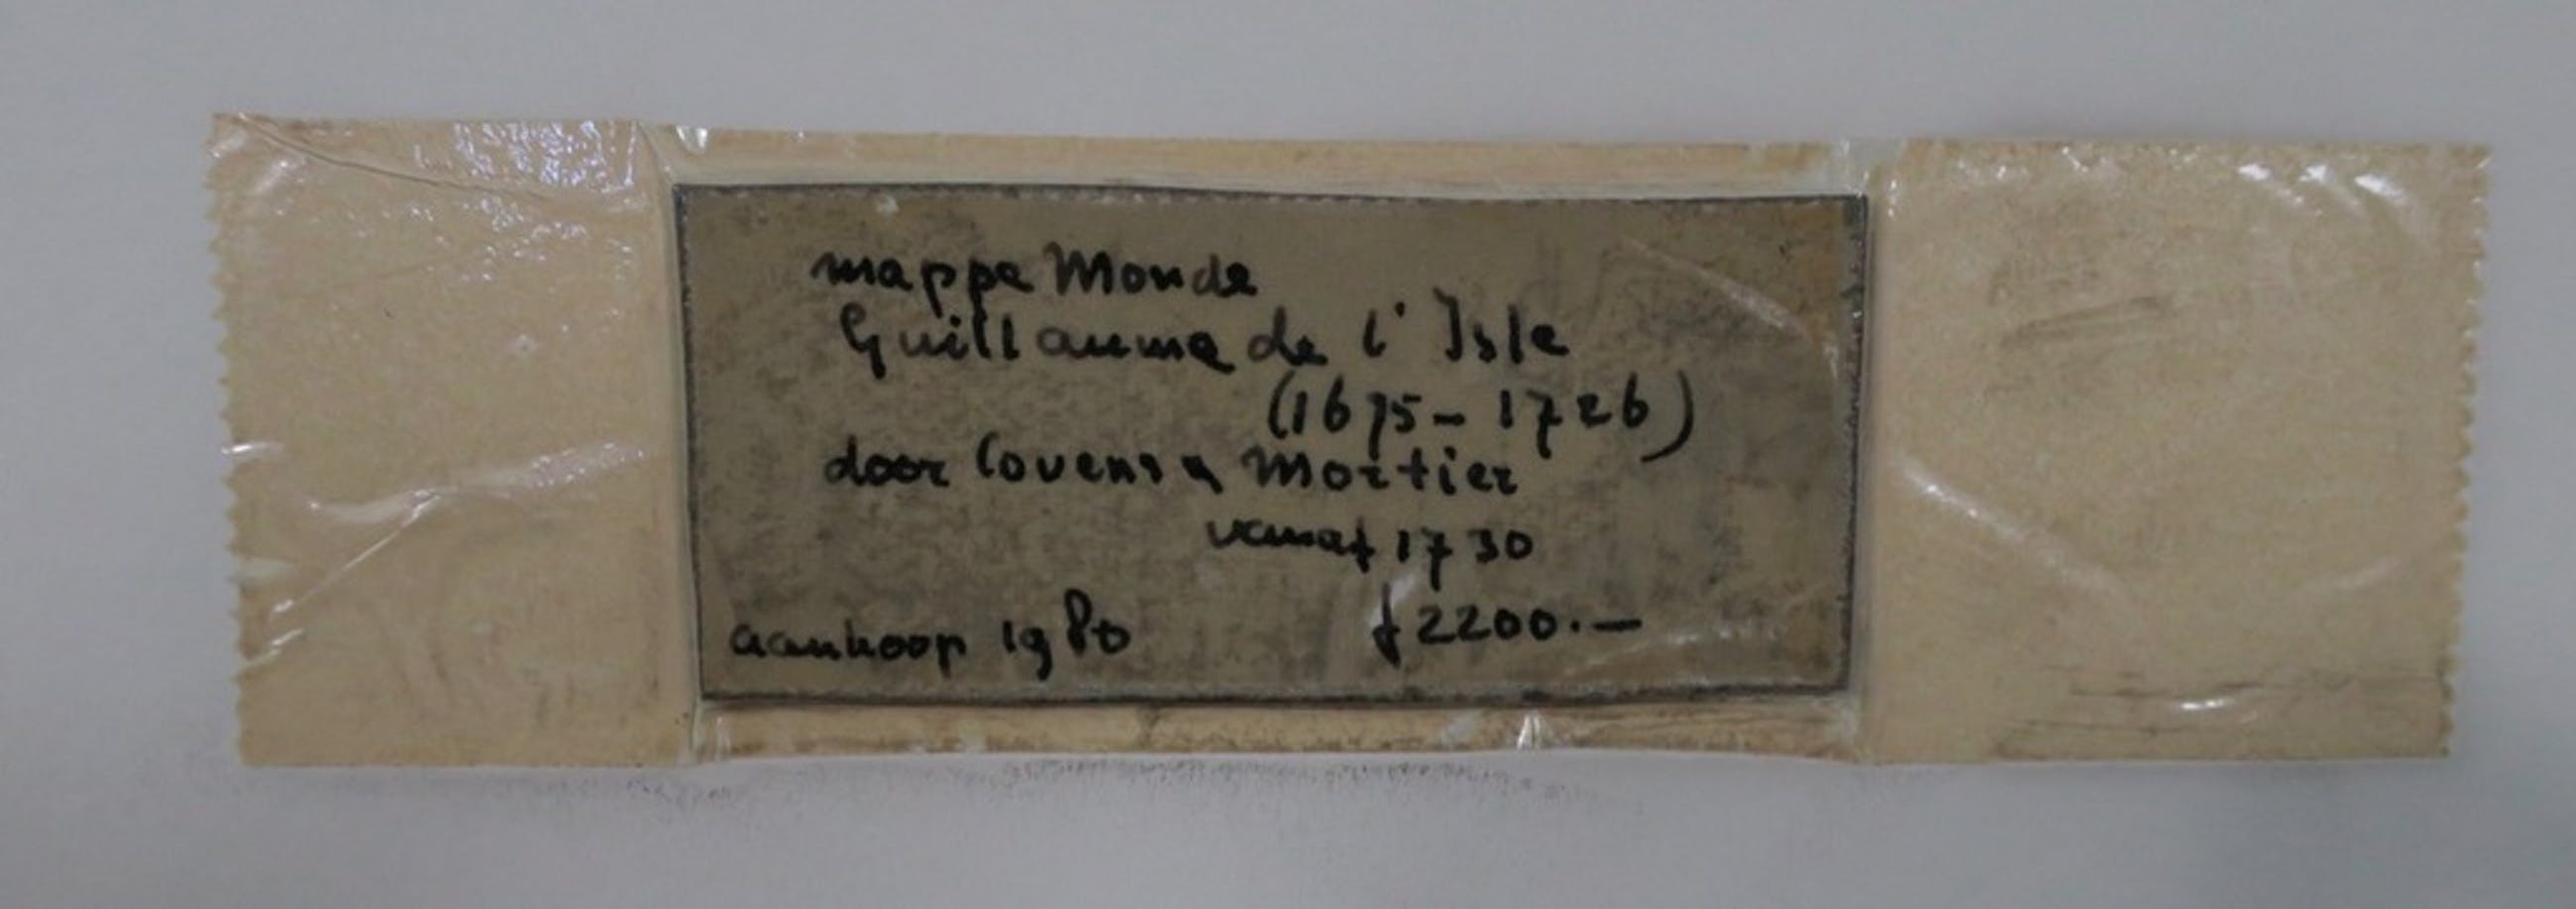 mappe Monde
Guillaume de l'Isle
(1675-1726)
door Covens & Mortier
vanaf 1730
aankoop 1980 ƒ2200.—